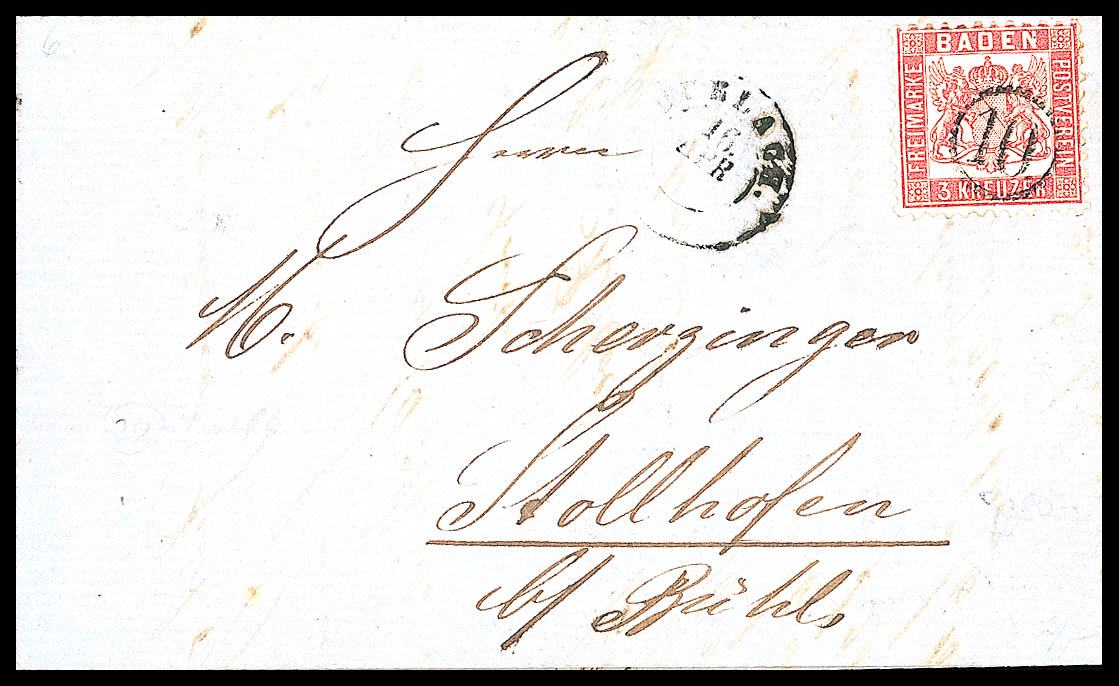 BADEN
FREIMARKE
POSTVEREIN
3 KREUZER
10
16.
APR
Herrn
M. Scherzinger
Stollhofen
b/ Bühl.
6